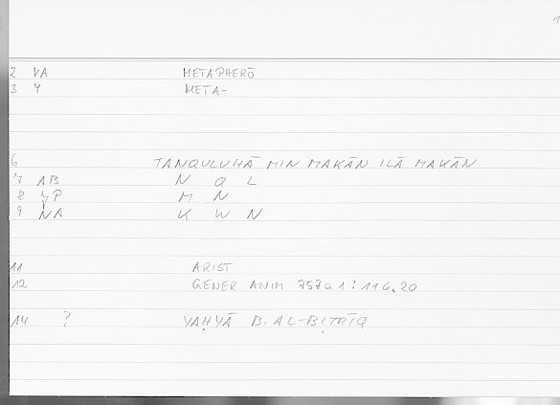 1
2 VA METAPHERŌ
3 Y META-
6 TANQULUHĀ MIN MAKĀN ILĀ MAKĀN
7 AB N Q L
8 LP M N
9 NA K W N
11 ARIST
12 GENER ANIM 757a1 : 116.20
14 ? YAḤYĀ B. AL-BIṬRĪQ